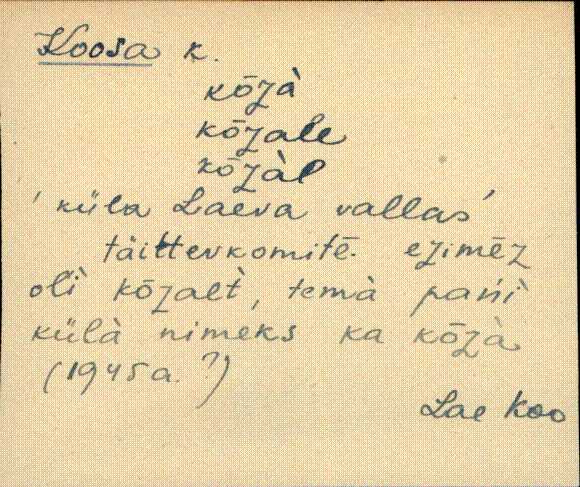 Koosa k.
kōʒà
kōʒale
kōʒàl
'küla Laeva vallas'
täittevkomitē. eʒimēʒ
oĺì kōʒalt̀, temà pańì
külà nimeks ka kōʒà
(1945a. ?)
Lae Koo